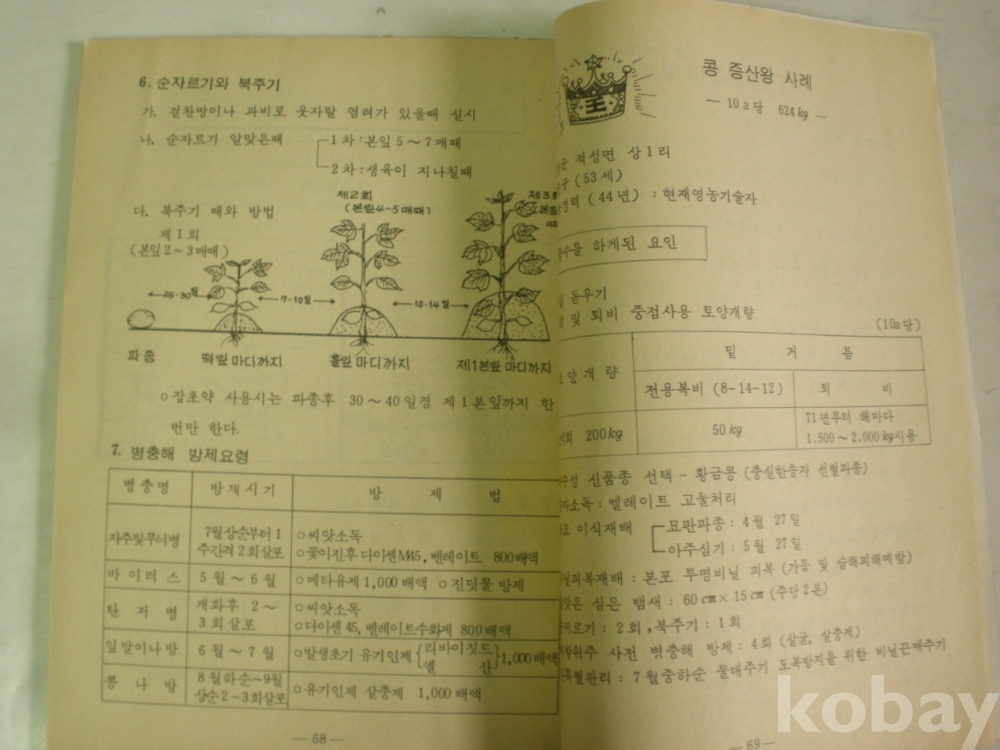 6. 순자르기와 북주기
가. 걸찬땅이나 과비로 웃자랄 염려가 있을때 실시
나. 순자르기 알맞은때 1차:본잎 5～7매때
2차:생육이 지나칠때
다. 북주기 때와 방법
제1회
(본잎2～3매때)
제2회
(본잎4～5매때)
제3회
(본잎
때
25-30일
7-10일
10-14일
파종
떡잎 마디까지
홀잎 마디까지
제1본잎 마디까지
o잡초약 사용시는 파종후 30～40일경 제1본잎까지 한
번만 한다.
7. 병충해 방제요령
병충명 방제시기 방 제 법
자주빛무늬병 7월상순부터 1주간격 2회살포 o씨앗소독
o꽃이진후 다이센M45, 벤레이트 800배액
바이러스 5월～6월 o메타유제 1,000배액 o진딧물 방제
탄저병 개화후 2～3회살포 o씨앗소독
o다이센 45, 벤레이트수화제 800배액
잎말이나방 6월～7월 o발생초기 유기인제 {리바이짓드 엘산} 1,000배액
콩나방 8월하순～9월상순 2～3회살포 o유기인제 살충제 1,000배액
— 68 —
콩 증산왕 사례
— 10a당 624kg —
적성면 상1리
(53세)
(44년) : 현재영농기술자
하게된 요인
돋우기
및 퇴비 중점사용 토양개량
(10a당)
양개량 밑거름
전용복비 (8-14-12) 퇴비
200kg 50kg 71년부터 해마다
1.500～2.000kg시용
신품종 선택 - 황금콩 (충실한종자 선별파종)
소독 : 벨레이트 고돌처리
이식재배 묘판파종 : 4월 27일
아주심기 : 5월 27일
닐피복재배 : 본포 투명비닐 피복 (가뭄 및 습해피해예방)
맞은 심은 뱀새 : 60cm×15cm (주당 2본)
르기 : 2회, 북주기 : 1회
위주 사전 병충해 방제 : 4회 (살균, 살충제)
특별관리 : 7월중하순 물대주기 도복방지를 위한 비닐끈매주기
— 69 —
kobay